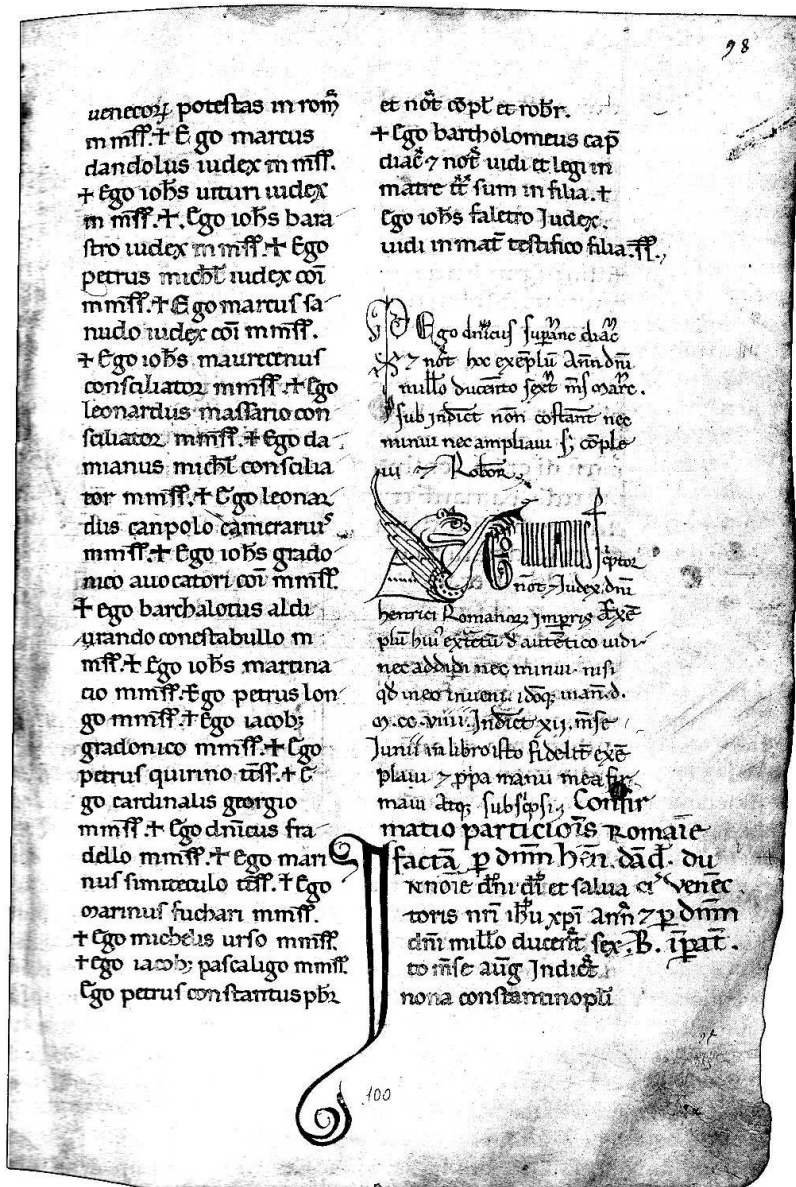 98
uenecoꝝ potestas in rom̃
m mss̃.✝ Ego marcus
dandolus iudex m mss̃.
✝ Ego ioħs uituri iudex
m mss̃.✝. Ego ioħs bara
stro iudex m mss̃.✝ Ego
petrus micħl iudex coĩ
m mss̃.✝ Ego marcus sa
nudo iudex coĩ m mss̃.
✝ Ego ioħs maurecenus
consciliator m mss̃.✝ Ego
leonardus massario con
sciliator m mss̃.✝ Ego da
mianus micħl conscilia
tor m mss̃.✝ Ego leonar
dus canpolo camerariuˢ
m mss̃.✝ Ego ioħs grado
nico auocatori coĩ m mss̃.
✝ Ego barchalotus aldi
urando conestabullo m
mss̃.✝ Ego ioħs martina
cio m mss̃. Ego petrus lon
go m mss̃.✝ Ego iacob;
gradonico m mss̃.✝ Ego
petrus quirino tẽss̃.✝ E
go cardinalis georgio
m mss̃.✝ Ego dñicus fra
dello m mss̃.✝ Ego mari
nus simiteculo tẽss̃.✝ Ego
marinus fuchari m mss̃.
✝ Ego michelis urso m mss̃.
✝ Ego iacob; pascaligo m mss̃.
Ego petrus constantius pb̃r
et not̃ cõpl̃ et rob̃r.
✝ Ego bartholomeus cap̃
diac̃ ⁊ not̃ uidi et legi in
matre tc̃ sum in filia.✝
Ego ioħs faletro Judex.
uidi in mat̃ testifico filia.ss̃.
Ego dñicus sup̃anc̃ diac̃
⁊ not̃ hoc exẽplũ Anñ dñi
millo ducento sext̃ m̃s marc̃.
sub indict̃ non cõstant̃ nec
minui nec ampliaui s; cõple
ui ⁊ Robor̃.
not̃ ⁊ Judex dñi
henrici Romanoꝝ Imp̃ris
plũ huiˀ exẽtũ d̓ autẽtico uidi
nec addidi nec minui. nisi
qd̓ in eo inueni. idoq;
m. cc. viiii. Indict̃ xij. m̃se
Junii in libro isto fidelit̃ exẽ
plaui ⁊ ꝓpa manu mea fir
maui atq; subscpsi; Confir
matio particioĩs Romaie
facta p̱ dñm hẽn. dãd̃. du
Jnnoĩe dñi dĩ et salua c̃ venec̃
toris nr̃i iħu xp̃i Anñ ⁊ p̱ dñm
dñi millo ducent̃ sex. B. ip̃at̃.
to m̃se aug̃ Indict̃
nona constantinopli
100